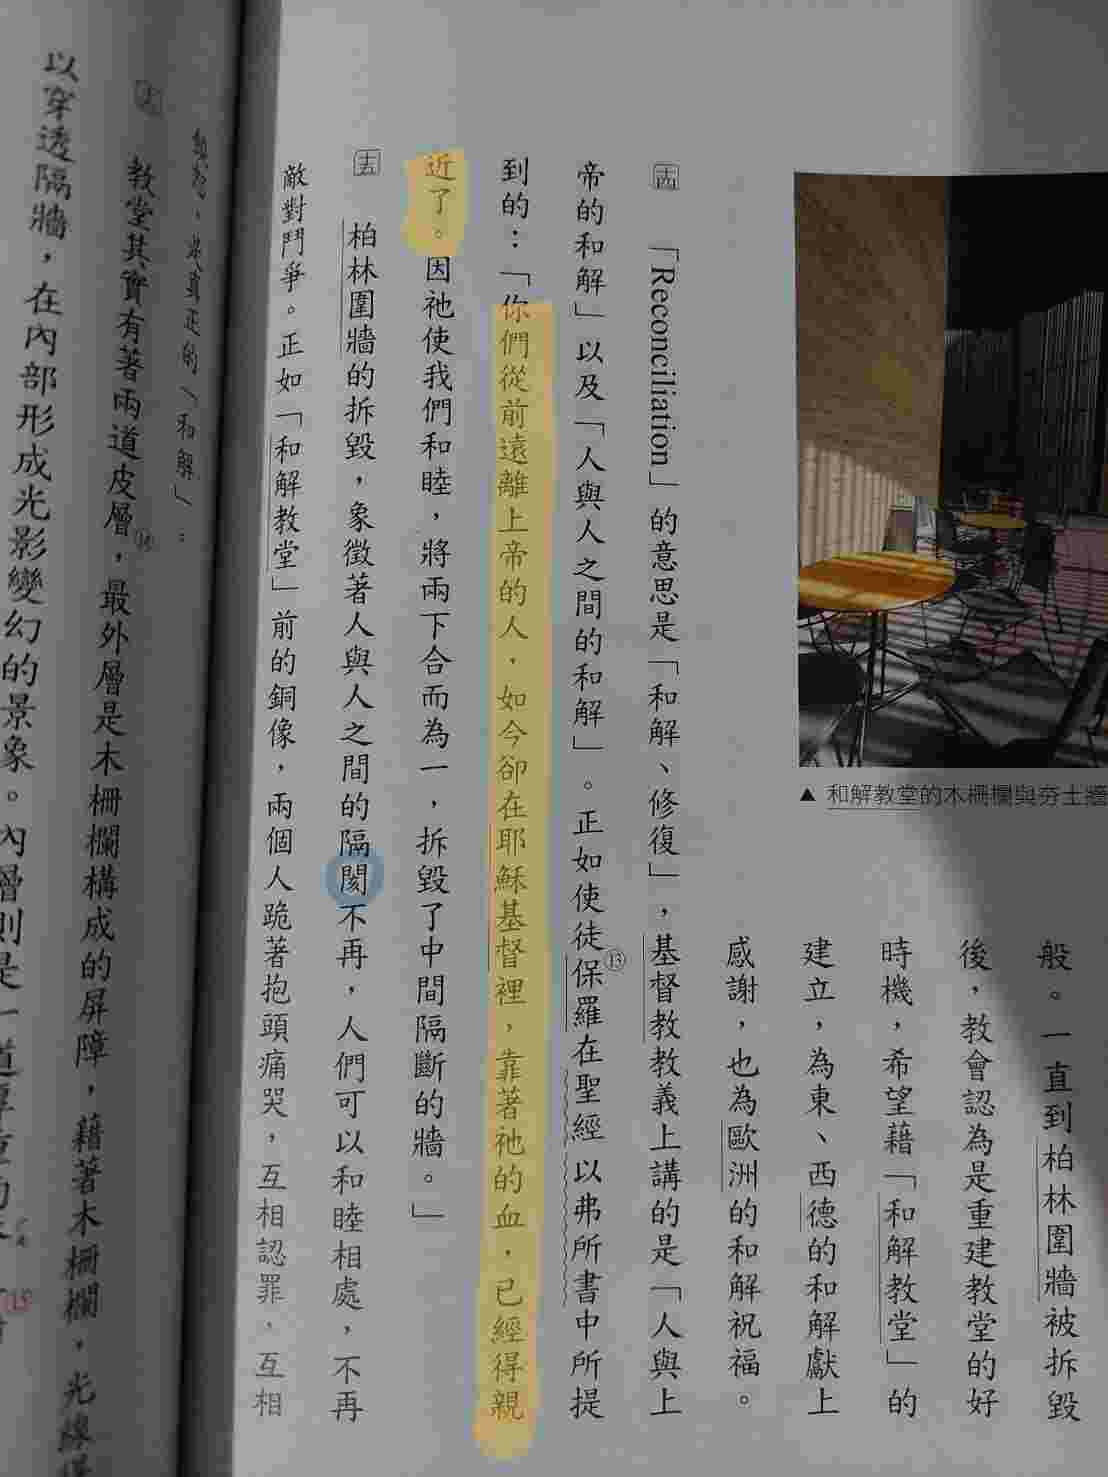 般。一直到柏林圍牆被拆毀
後，教會認為是重建教堂的好
時機，希望藉「和解教堂」的
建立，為東、西德的和解獻上
感謝，也為歐洲的和解祝福。
▲ 和解教堂的木柵欄與夯土牆
西 「Reconciliation」的意思是「和解、修復」，基督教教義上講的是「人與上
帝的和解」以及「人與人之間的和解」。正如使徒保羅⑬在聖經以弗所書中所提
到的：「你們從前遠離上帝的人，如今卻在耶穌基督裡，靠著祂的血，已經得親
近了。因祂使我們和睦，將兩下合而為一，拆毀了中間隔斷的牆。」
柏林圍牆的拆毀，象徵著人與人之間的隔閡不再，人們可以和睦相處，不再
敵對鬥爭。正如「和解教堂」前的銅像，兩個人跪著抱頭痛哭，互相認罪，互相
真正的「和解」。
教堂其實有著兩道皮層⑭，最外層是木柵欄構成的屏障，藉著木柵欄，光線
以穿透隔牆，在內部形成光影變幻的景象。內層則是一道厚重的